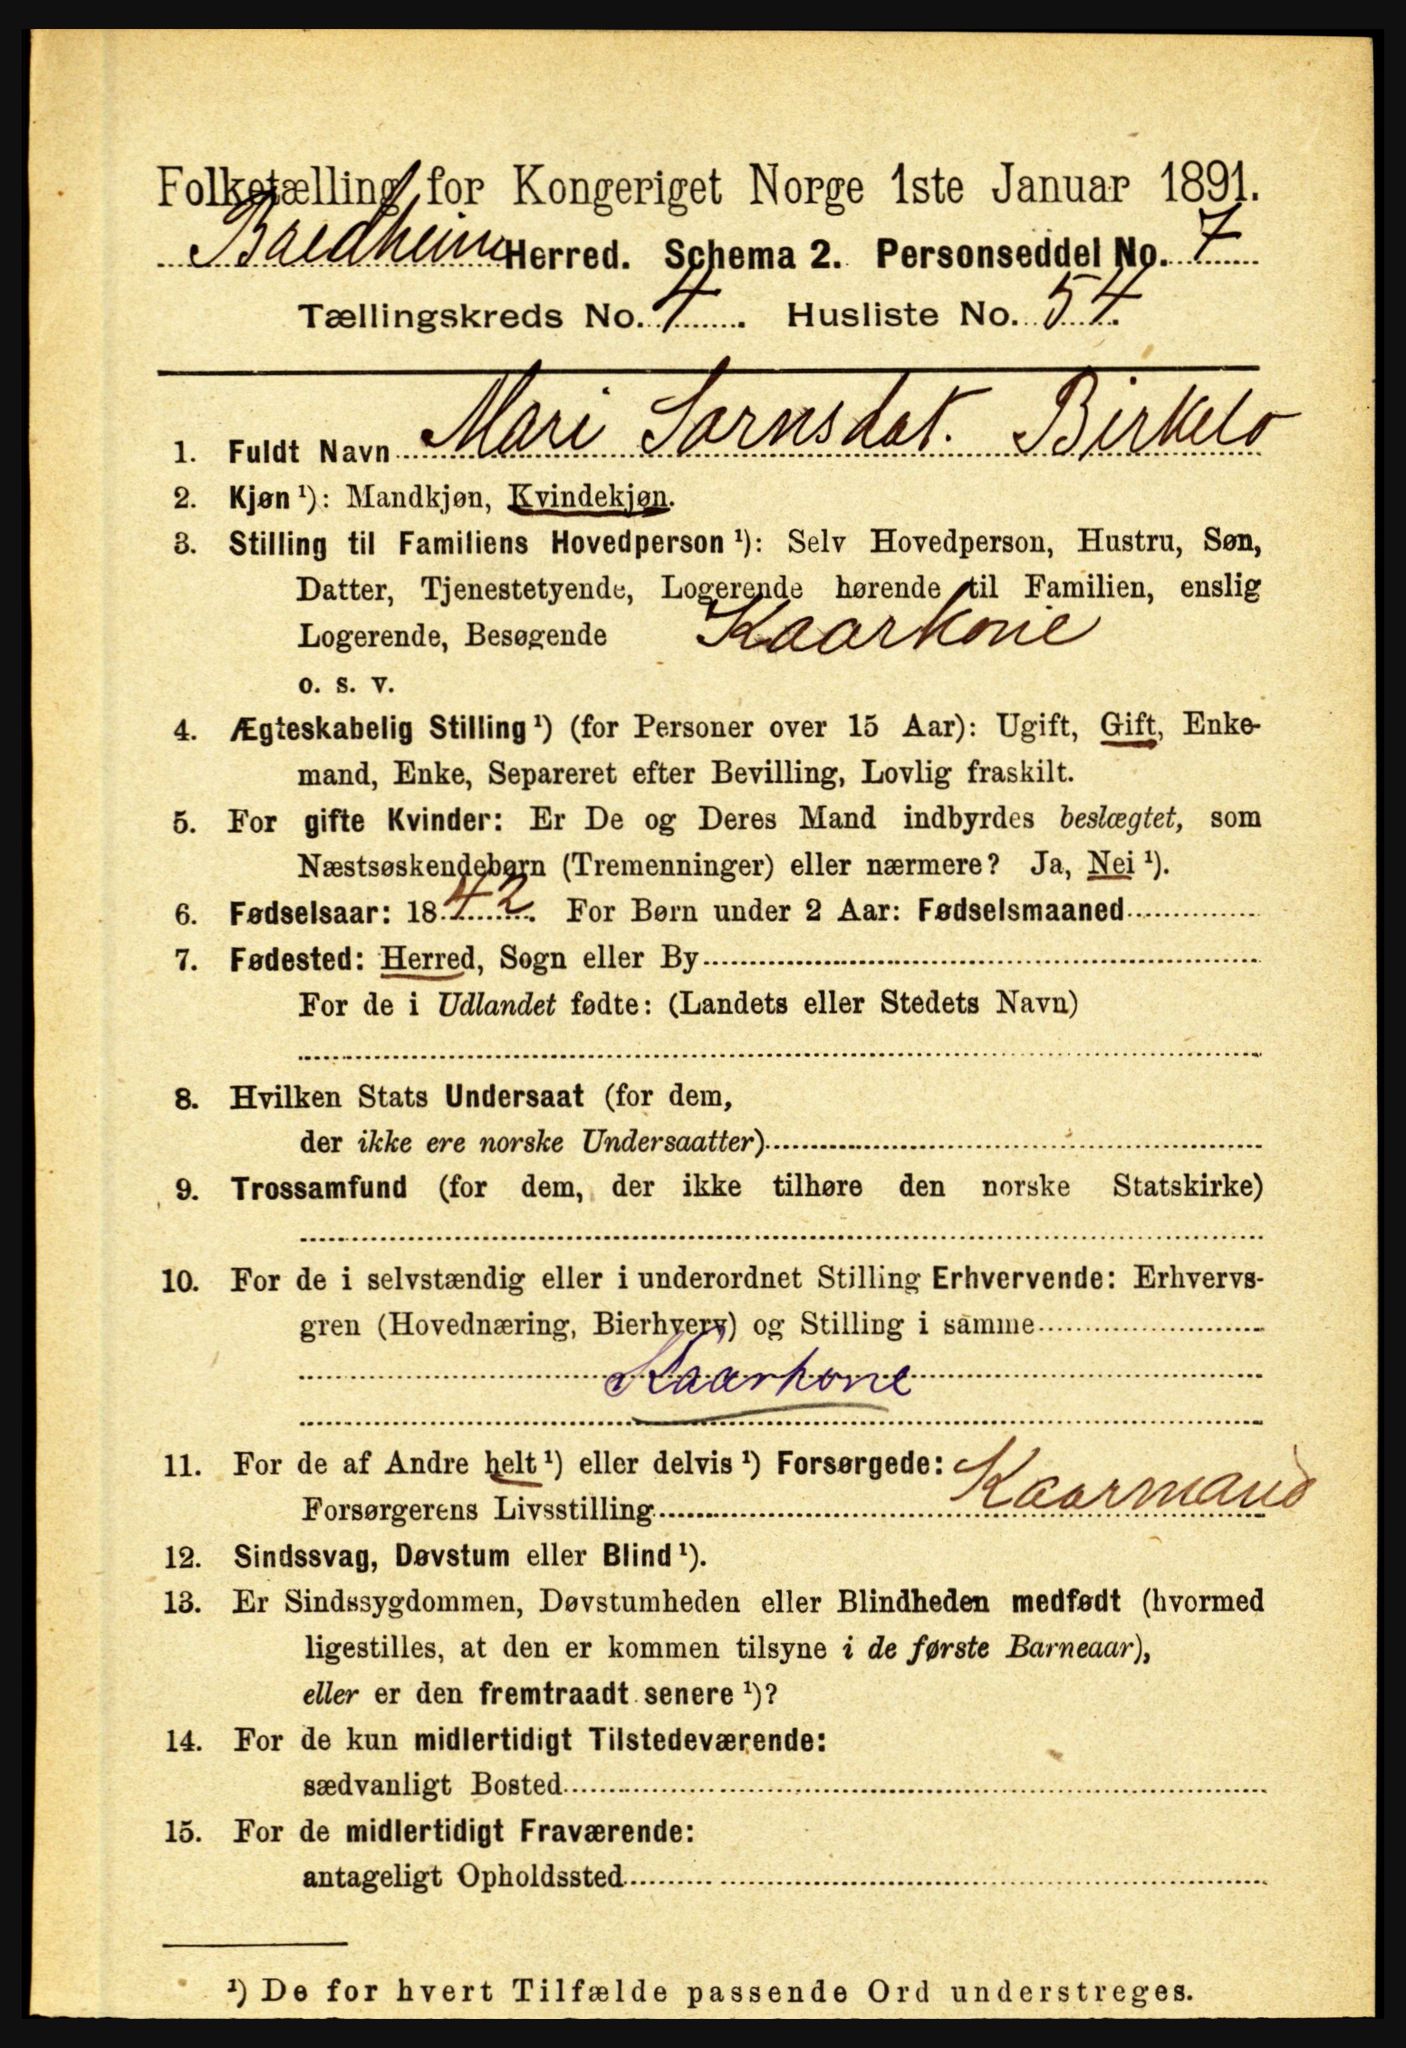 Folketælling for Kongeriget Norge 1ste Januar 1891.
Bredheim Herred. Schema 2. Personseddel No. 7
Tællingskreds No. 4. Husliste No. 54.
1. Fuldt Navn Mari Larnsdat. Birkelo
2. Kjøn ¹): Mandkjøn, Kvindekjøn.
3. Stilling til Familiens Hovedperson ¹): Selv Hovedperson, Hustru, Søn,
Datter, Tjenestetyende, Logerende hørende til Familien, enslig
Logerende, Besøgende Kaarkone
o. s. v.
4. Ægteskabelig Stilling ¹) (for Personer over 15 Aar): Ugift, Gift, Enke-
mand, Enke, Separeret efter Bevilling, Lovlig fraskilt.
5. For gifte Kvinder: Er De og Deres Mand indbyrdes beslægtet, som
Næstsøskendebørn (Tremenninger) eller nærmere? Ja, Nei ¹).
6. Fødselsaar: 1842. For Børn under 2 Aar: Fødselsmaaned
7. Fødested: Herred, Sogn eller By
For de i Udlandet fødte: (Landets eller Stedets Navn)
8. Hvilken Stats Undersaat (for dem,
der ikke ere norske Undersaatter)
9. Trossamfund (for dem, der ikke tilhøre den norske Statskirke)
10. For de i selvstændig eller i underordnet Stilling Erhvervende: Erhvervs-
gren (Hovednæring, Bierhverv) og Stilling i samme
Kaarkone
11. For de af Andre helt ¹) eller delvis ¹) Forsørgede:
Forsørgerens Livsstilling Kaarmand
12. Sindssvag, Døvstum eller Blind ¹).
13. Er Sindssygdommen, Døvstumheden eller Blindheden medfødt (hvormed
ligestilles, at den er kommen tilsyne i de første Barneaar),
eller er den fremtraadt senere ¹)?
14. For de kun midlertidigt Tilstedeværende:
sædvanligt Bosted
15. For de midlertidigt Fraværende:
antageligt Opholdssted
¹) De for hvert Tilfælde passende Ord understreges.